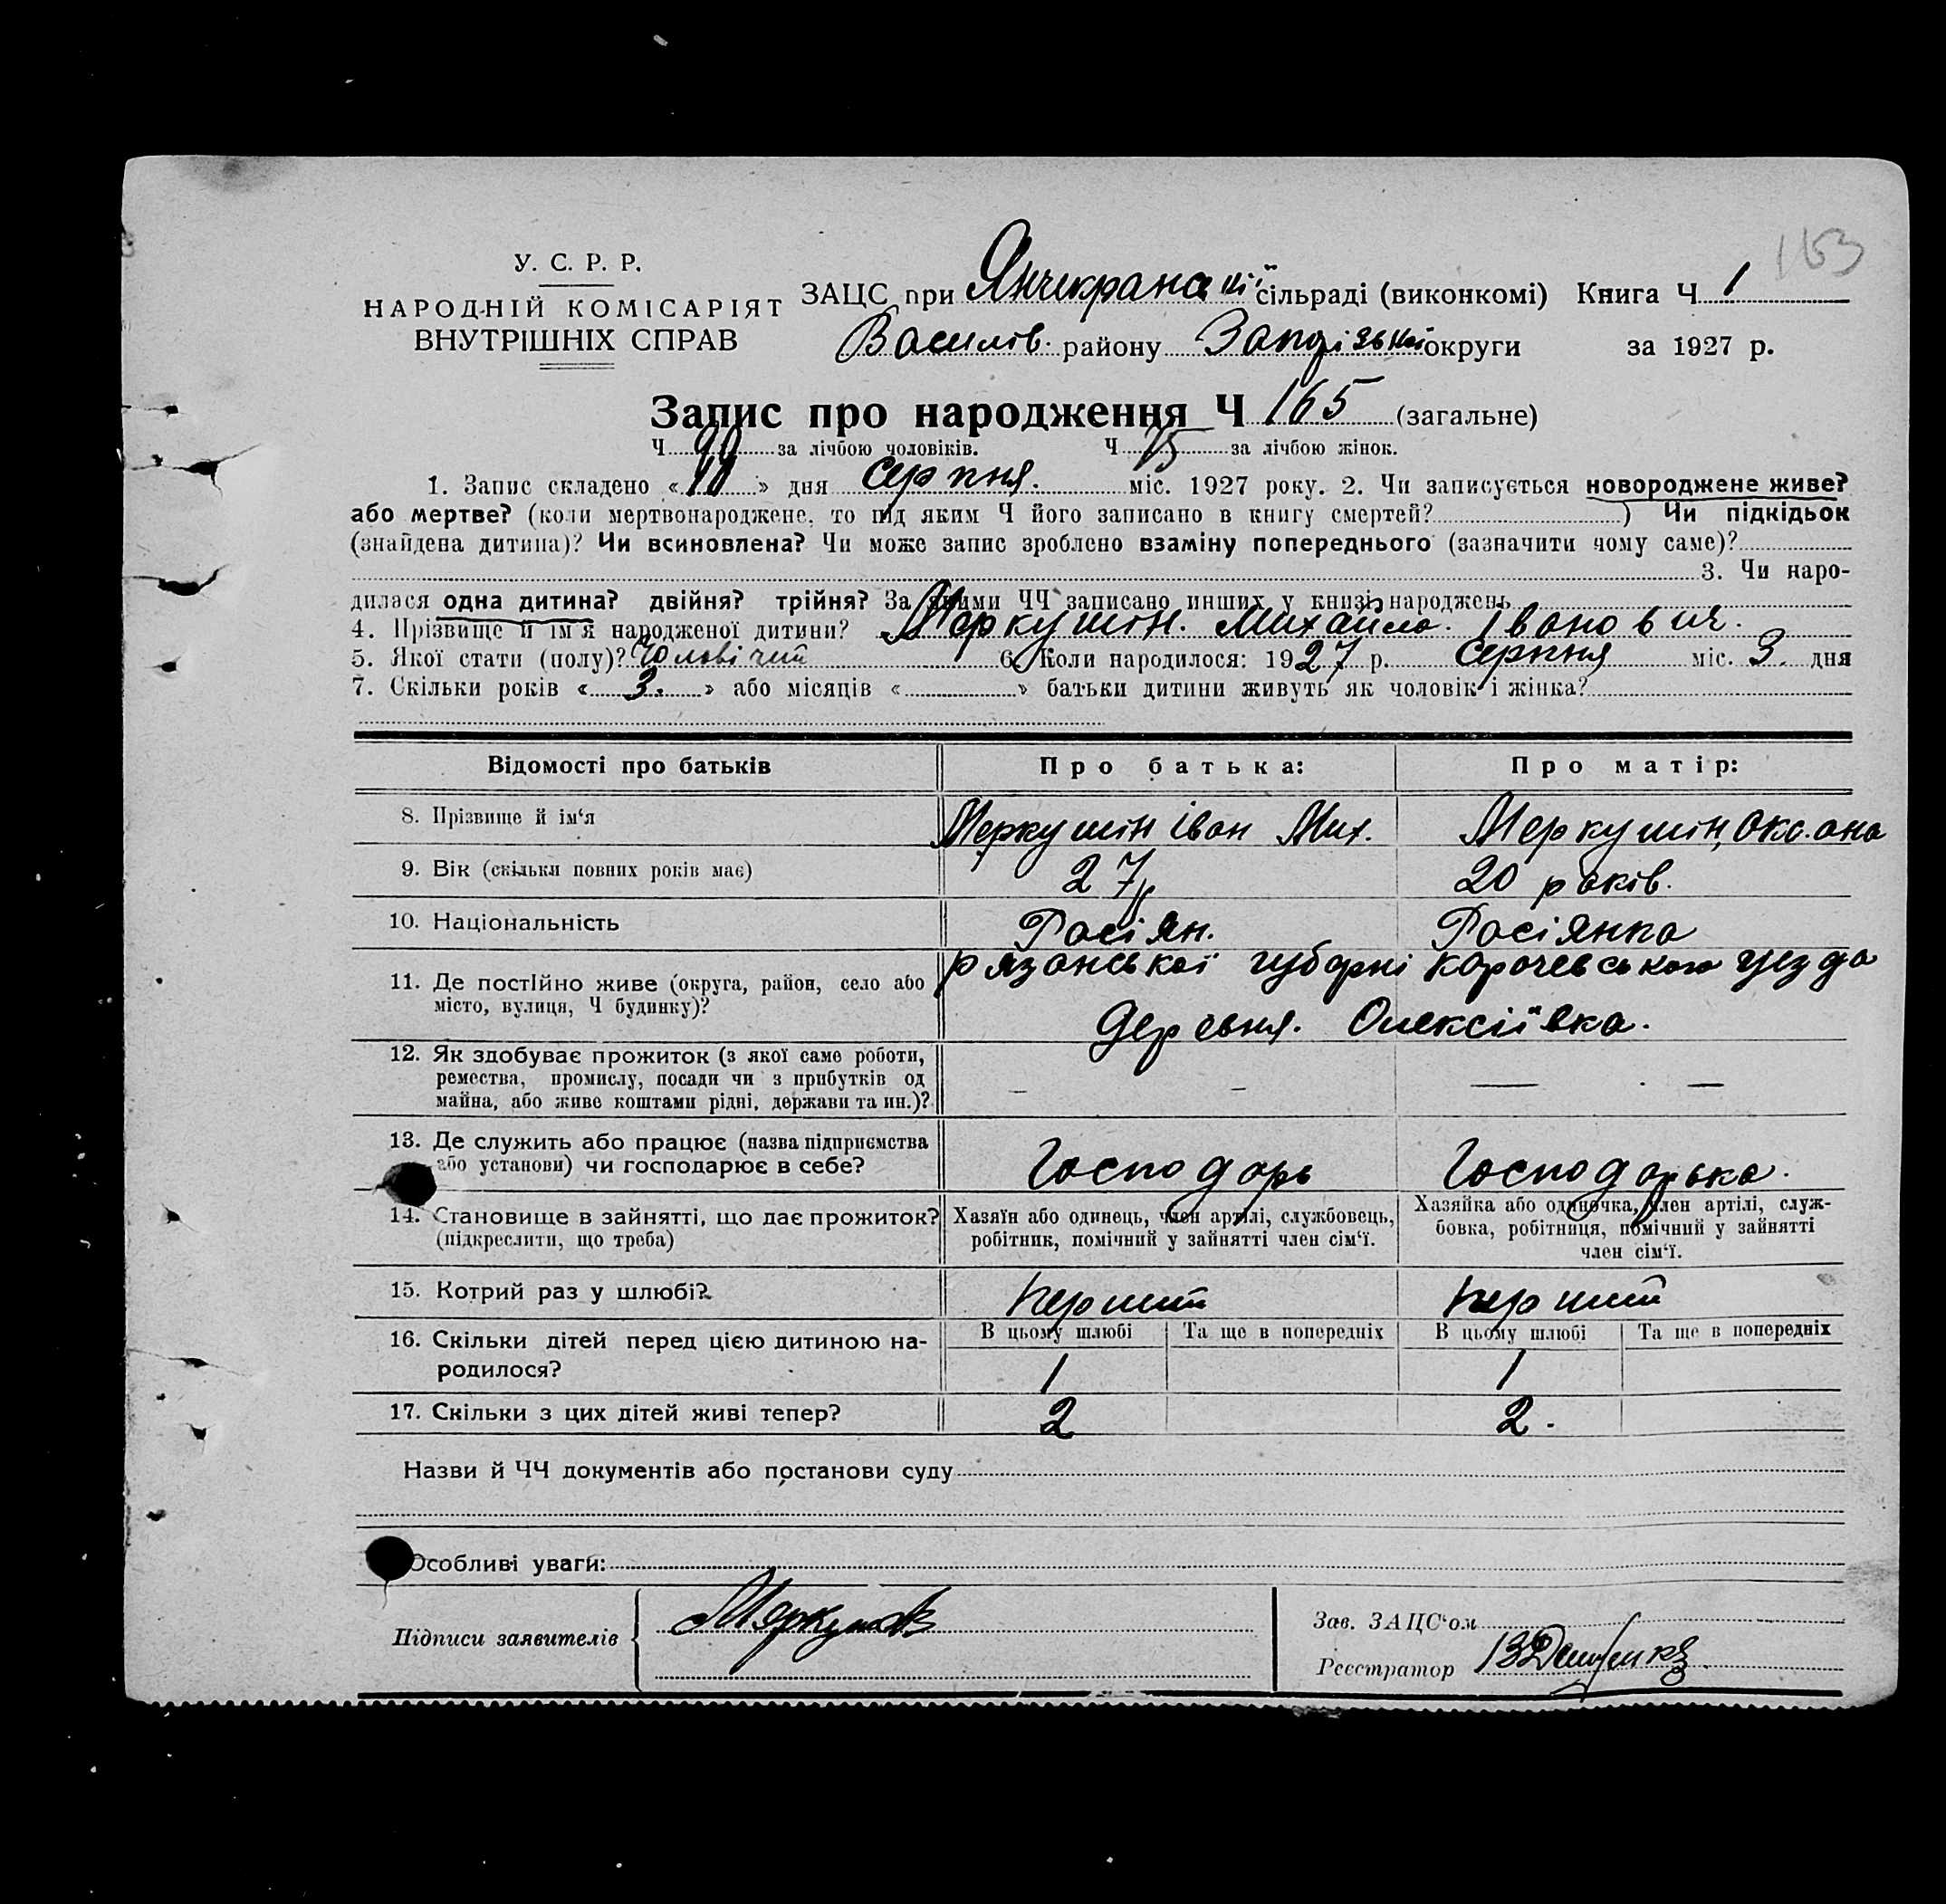 163
У. С. Р. Р.
НАРОДНІЙ КОМІСАРІЯТ
ВНУТРІШНІХ СПРАВ
ЗАЦС при Янчекракскій сільраді (виконкомі) Книга Ч 1
Василів. району Запорізької округи за 1927 р.
Запис про народження Ч 165 (загальне)
Ч 90 за лічбою чоловіків. Ч 75 за лічбою жінок.
1. Запис складено «10» дня серпня. міс. 1927 року. 2. Чи записується новороджене живе?
або мертве? (коли мертвонароджене, то під яким Ч його записано в книгу смертей?) Чи підкідьок
(знайдена дитина)? Чи всиновлена? Чи може запис зроблено взаміну попереднього (зазначити чому саме)?
3. Чи наро-
дилася одна дитина? двійня? трійня? За якими ЧЧ записано инших у книзі народжень
4. Прізвище й ім'я народженої дитини? Меркушін. Михайло. Іванович.
5. Якої стати (полу)? Чоловічий 6. Коли народилося: 1927 р. серпня міс. 3. дня
7. Скільки років «3.» або місяців « » батьки дитини живуть як чоловік і жінка?
Відомості про батьків Про батька: Про матір:
8. Прізвище й ім'я Меркушін Іван Мих. Меркушін, Оксана
9. Вік (скільки повних років має) 27 р 20 років.
10. Національність Росіян. Росіянка
11. Де постійно живе (округа, район, село або рязанської губерні корочевського уезда
місто, вулиця, Ч будинку)? деревня. Олексіївка.
12. Як здобуває прожиток (з якої саме роботи,
ремества, промислу, посади чи з прибутків од — — — —
майна, або живе коштами рідні, держави та ин.)?
13. Де служить або працює (назва підприємства
або установи) чи господарює в себе? Господарь Господарька.
14. Становище в зайнятті, що дає прожиток? (підкреслити, що треба)
Хазяїн або одинець, член артілі, службовець,
робітник, помічний у зайнятті член сім'ї.
Хазяйка або одиночка, член артілі, служ-
бовка, робітниця, помічний у зайнятті
член сім'ї.
15. Котрий раз у шлюбі? перший перший
16. Скільки дітей перед цією дитиною на-
родилося?
В цьому шлюбі Та ще в попередніх В цьому шлюбі Та ще в попередніх
1 1
17. Скільки з цих дітей живі тепер? 2 2.
Назви й ЧЧ документів або постанови суду
Особливі уваги:
Підписи заявителів
Зав. ЗАЦС'ом
Реєстратор